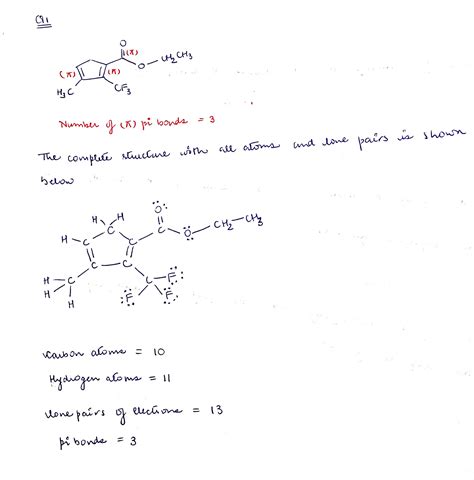 Q1
O
(π)
O
CH2
CH3
(π)
(π)
H3C
CF3
Number of (π) pi bonds = 3
The complete structure with all atoms and lone pairs is shown
below
H
H
O
CH3
H
C
C
O
CH2
C
C
C
C
H
C
C
F
H
F
F
H
Carbon atoms = 10
Hydrogen atoms = 11
lone pairs of electrons = 13
pi bonds = 3